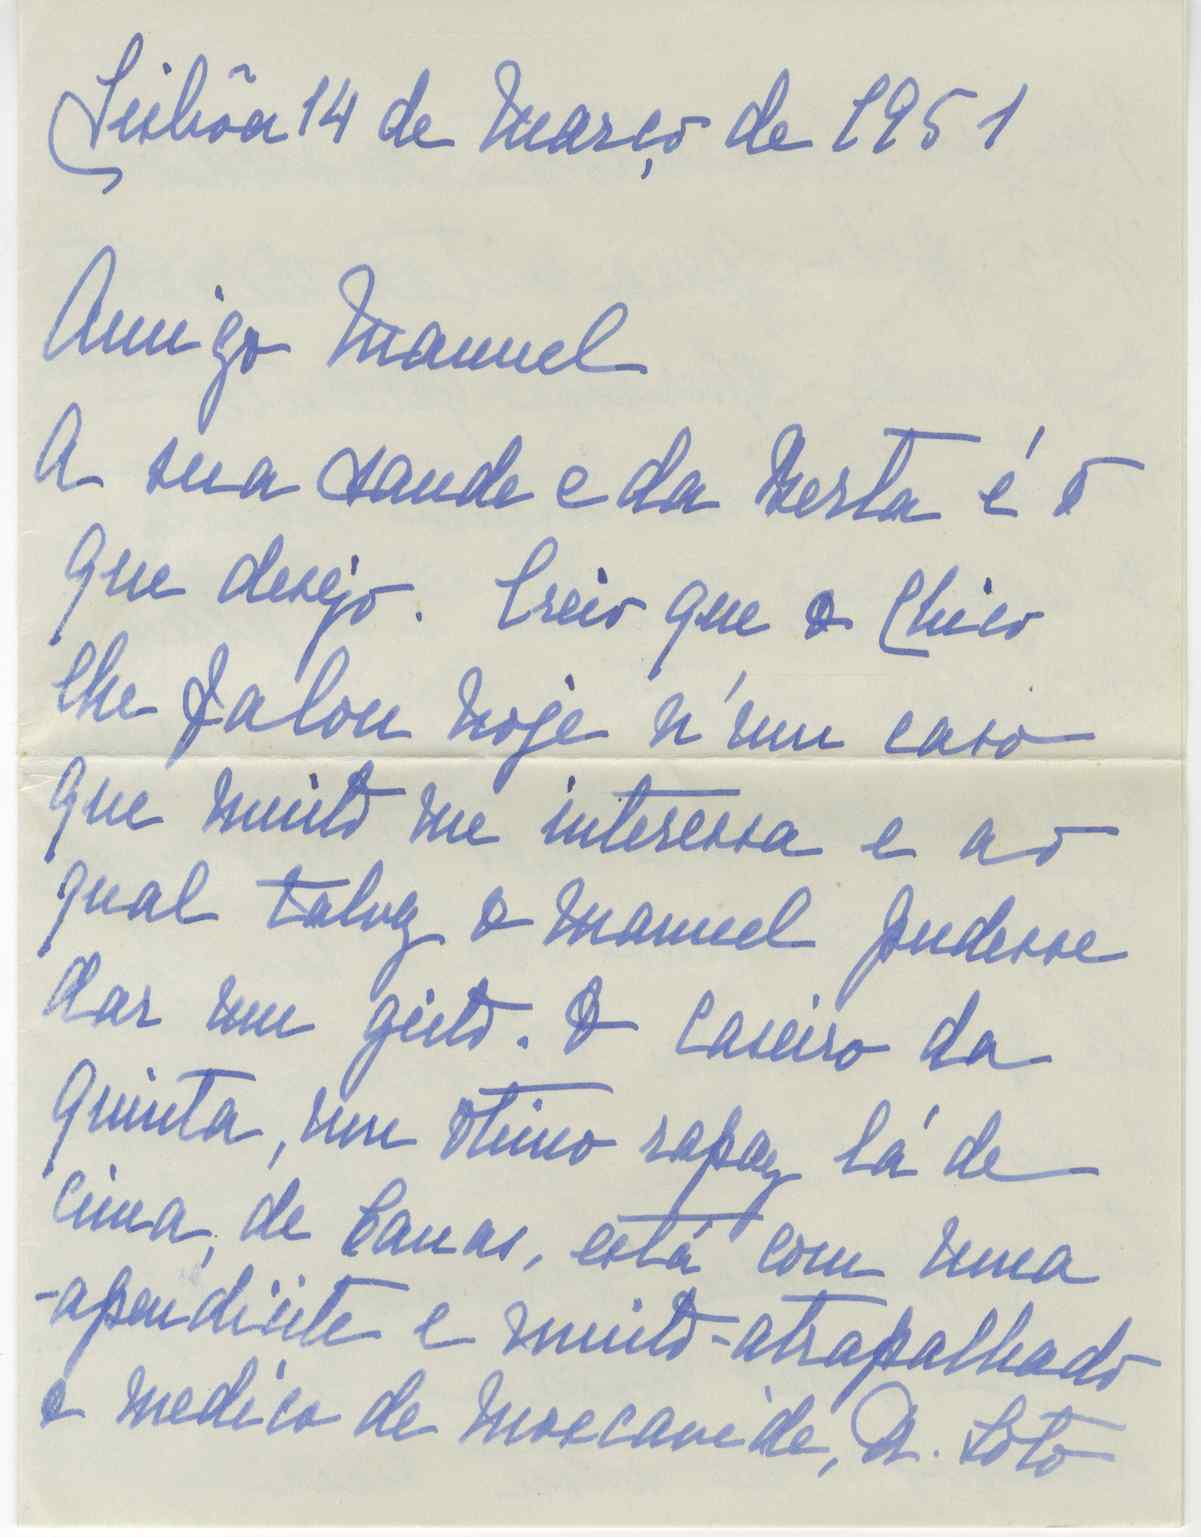 Lisbôa 14 de Março de 1951
Amigo Manuel
A sua saude e da Berta é o
que desejo. Creio que o Chico
lhe falou hoje n'um caso
que muito me interessa e ao
qual talvez o Manuel pudesse
dar um geito. O caseiro da
quinta, um otimo rapaz lá de
cima, de Canas, está com uma
-apendicite e muito-atrapalhado
o medico de Moscavide, D. Soto